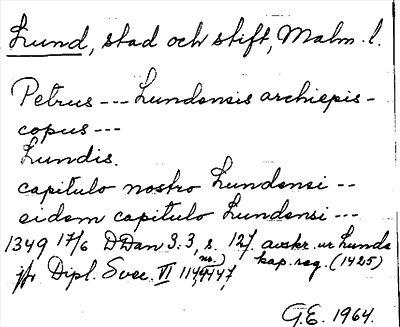 Lund, stad och stift, Malm. l.
Petrus --- Lundensis archiepis-
copus ---
Lundis.
capitulo nostro Lundensi --
eidem capitulo Lundensi ---
1349 17/6 DDan 3:3, s. 127. avskr. ur Lunds
kap. reg. (1425)
jfr Dipl. Svec. VI
G.E. 1964.